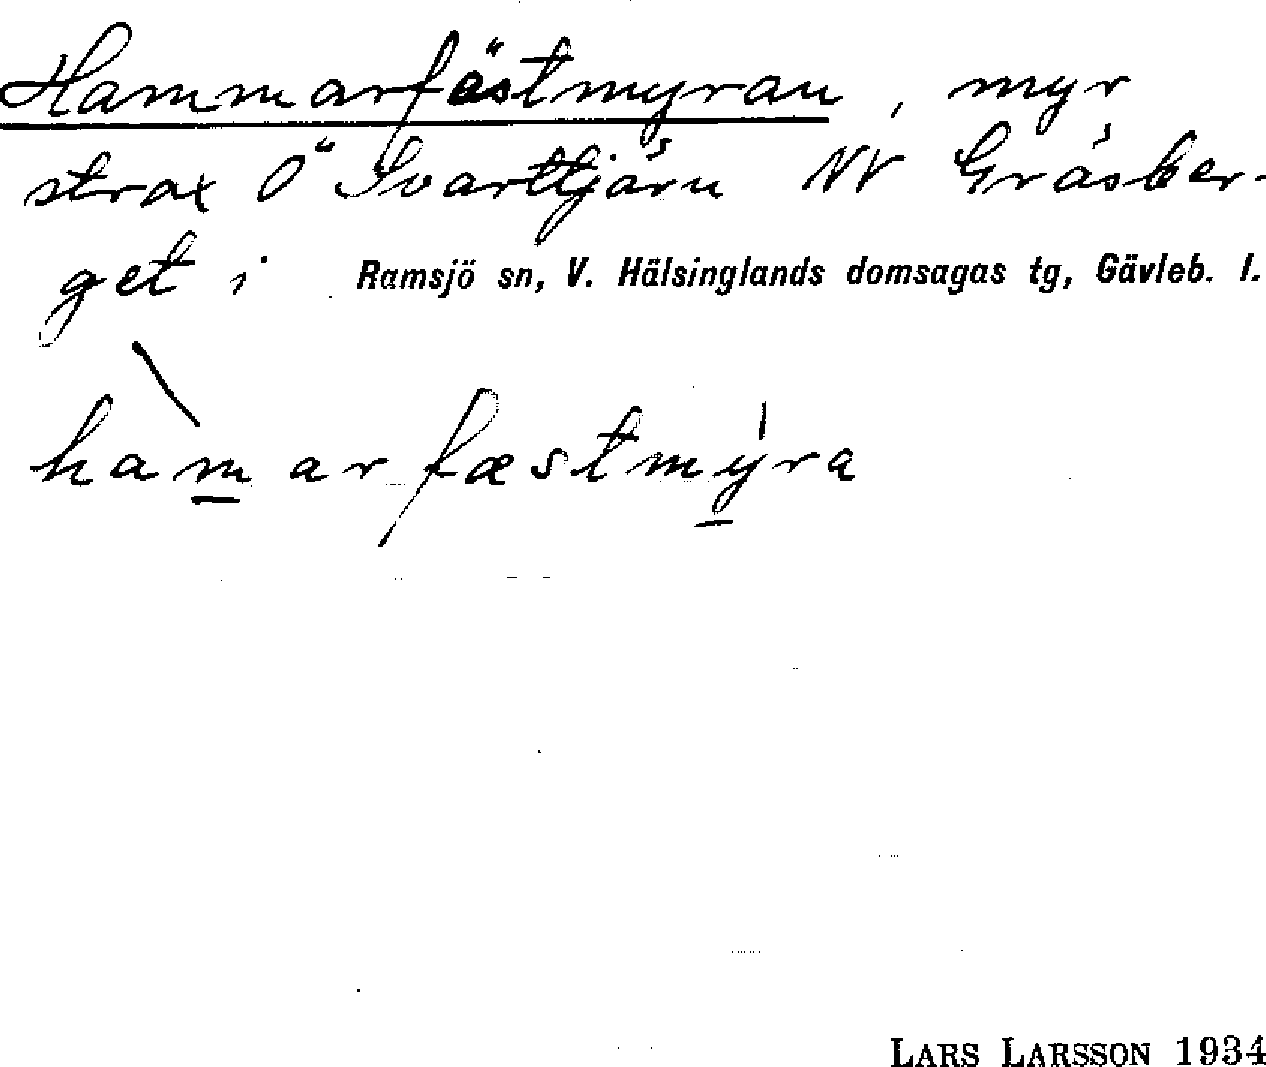 Hammarfästmyran, myr
strax Ö Svarttjärn NV Gräsber-
get i Ramsjö sn, V. Hälsinglands domsagas tg, Gävleb. l.
hamarfæstmyra
LARS LARSSON 1934